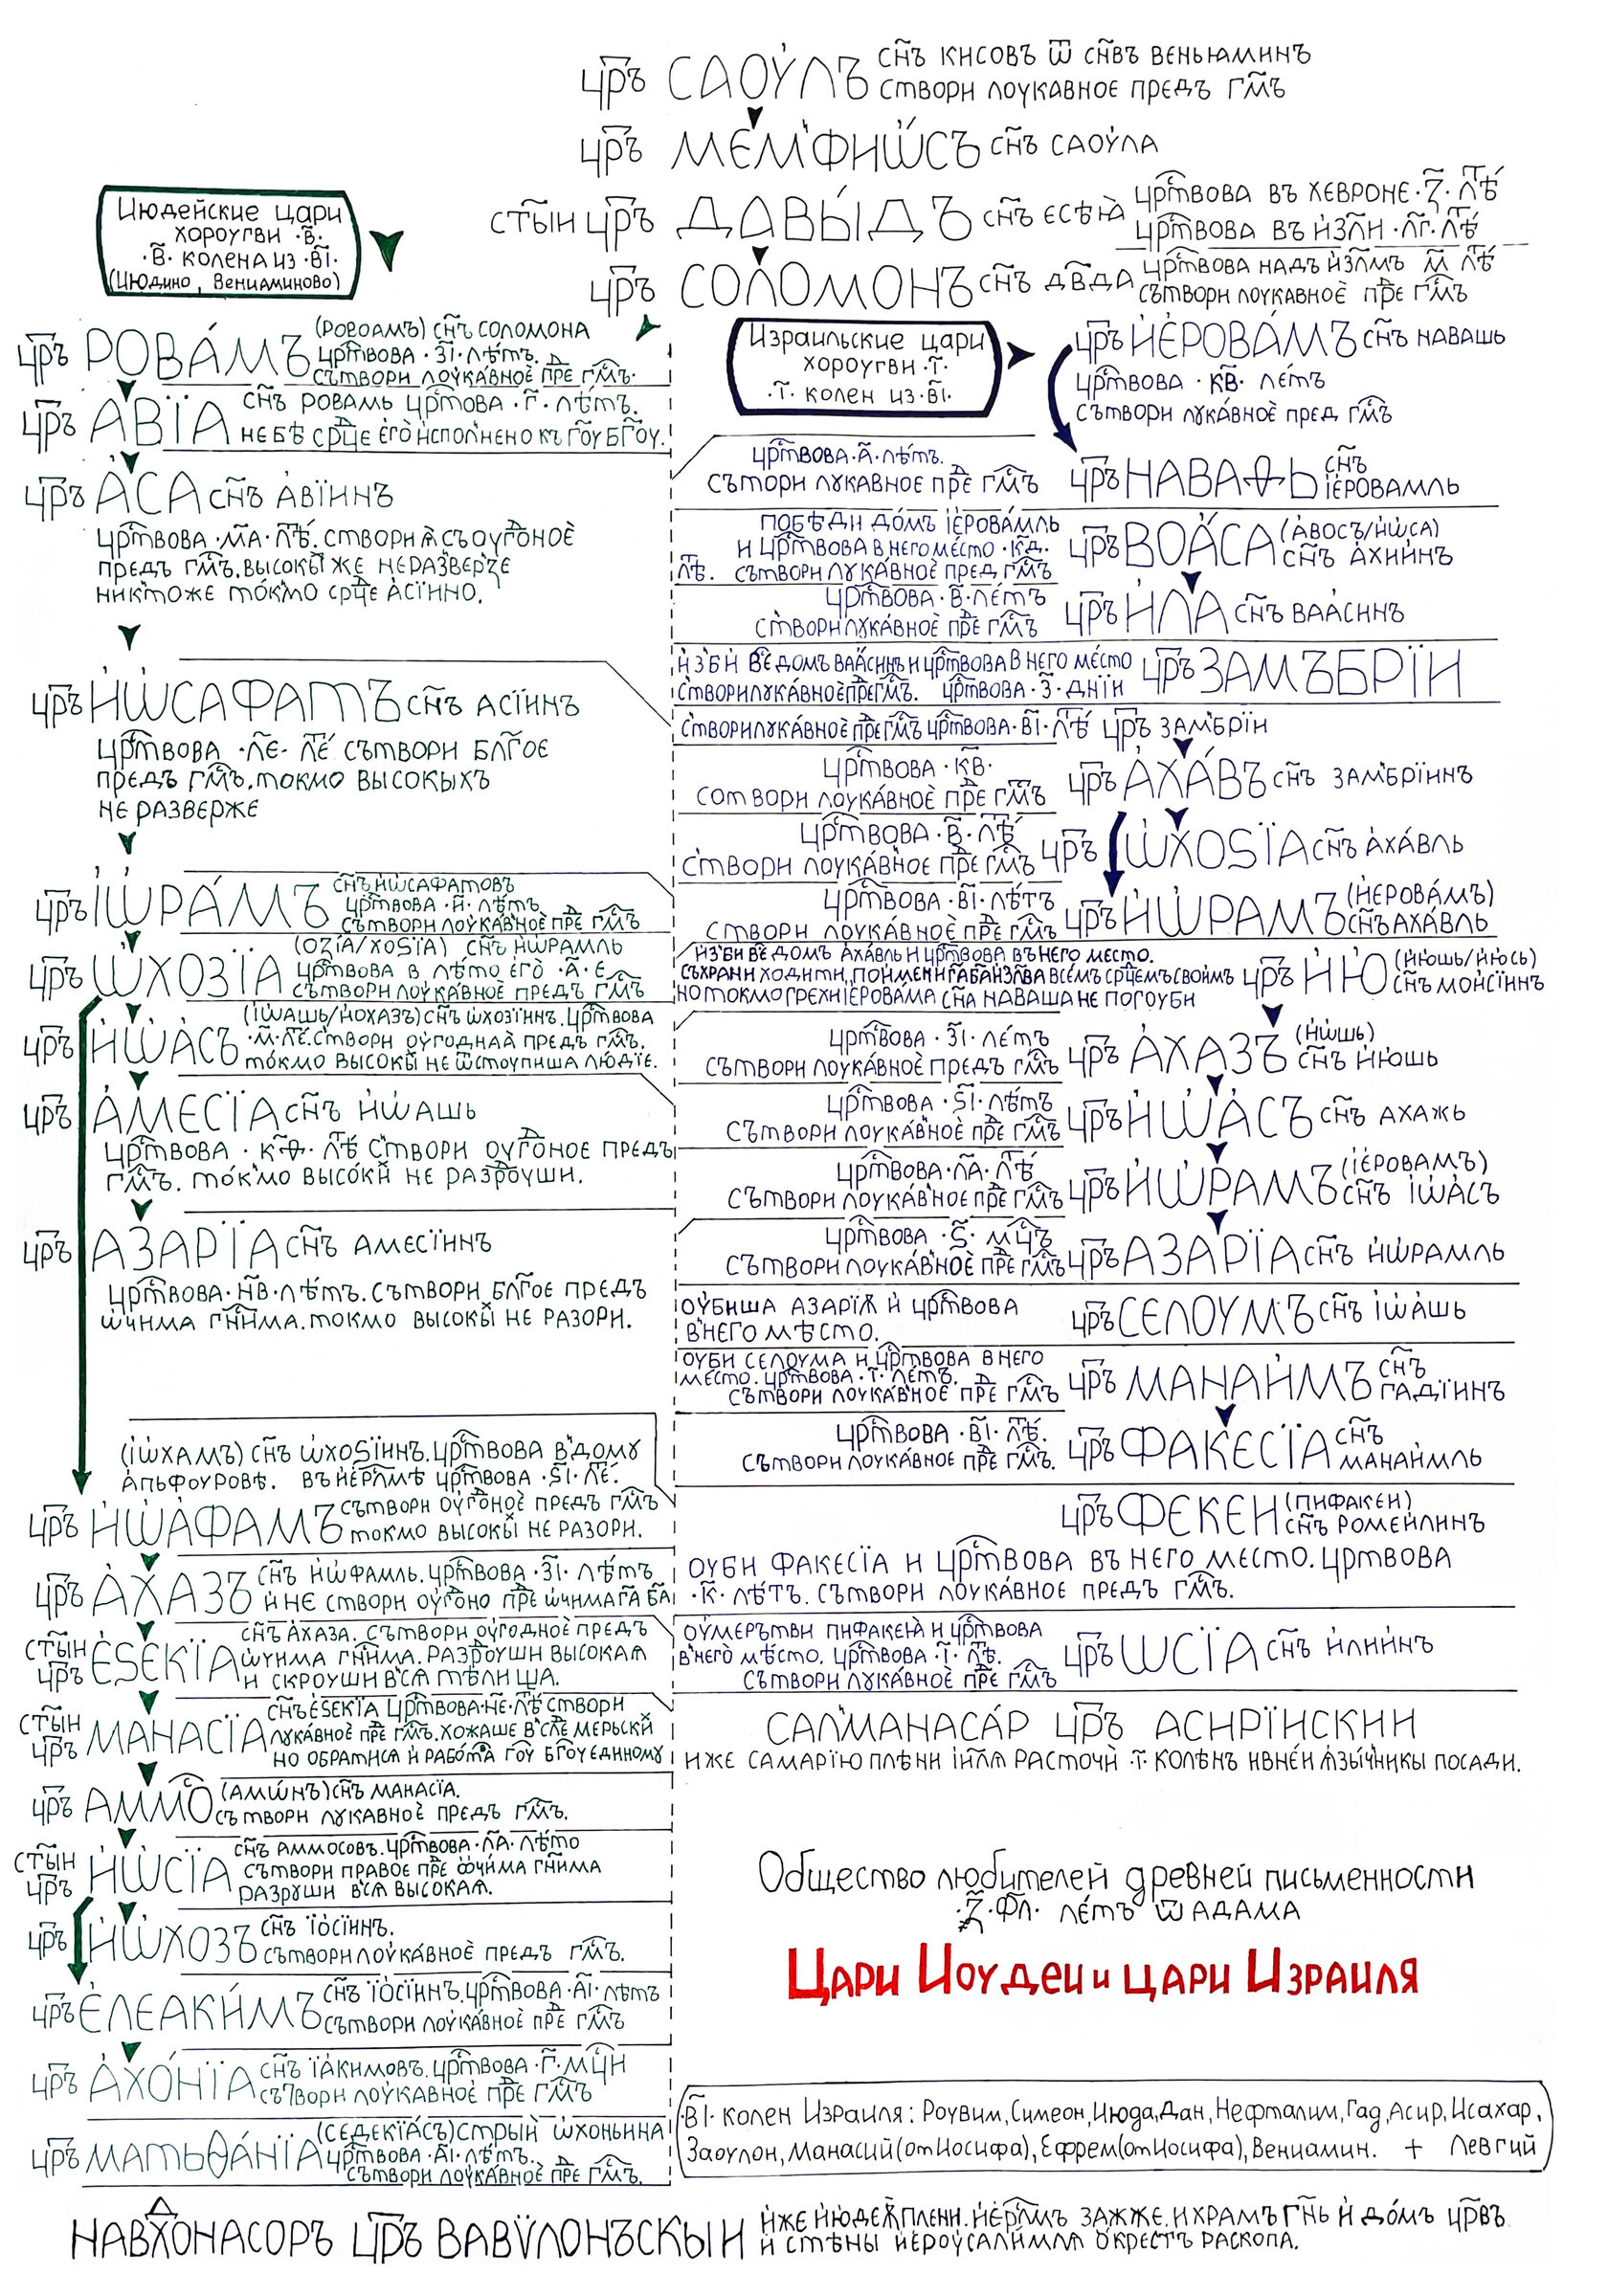 цр҃ъ САОУ́ЛЪ сн҃ъ кисовъ ѿ сн҃въ веньюминъ
створи лоукавное предъ гм҃ъ
цр҃ъ МЕ́М'ФИѠ́СЪ сн҃ъ саоу́ла
ст҃ыи цр҃ъ ДАВЫ́ДЪ сн҃ъ есѣѝꙗ
цр҃твова въ хевроне ·з҃· лѣ́т
цр҃твова въ и҆зл҃и ·лг҃· лѣ́т
цр҃ъ СОЛОМОНЪ сн҃ъ дв҃да
цр҃твова надъ и҆зл҃мъ м҃ лѣ́т
сътвори лоукавное пре гм҃ъ
Июдейские цари
хороугви ·в҃·
·в҃· колена из ·в҃і·
(Июдино, Вениаминово)
цр҃ъ РОВА́МЪ (ровоамъ) сн҃ъ соломона
цр҃твова ·з҃і· лѣтъ.
сътвори лоука́вное пре гм҃ъ·
цр҃ъ АВЇА сн҃ъ ровамь цр҃това ·г҃· лѣтъ.
не бѣ срц҃е его исполнено къ гоу҃ бг҃оу.
цр҃ъ А҆СА сн҃ъ а҆вїинъ
цр҃твова ·ма҃· лѣ́т. створи ѧ съ оуго́ное
предъ гм҃ъ. высокы же неразверзе
никтоже то́кмо срц҃е а҆сїино.
цр҃ъ И҆ѠСАФАТЪ сн҃ъ асїинъ
цр҃твова ·ле҃· ле́т сътвори блг҃ое
предъ гм҃ъ. токмо высокыхъ
не разверже
цр҃ъ І҆ѠРА́МЪ сн҃ъ и҆ѡсафатовъ
цр҃твова ·и҃· лѣтъ
сътвори лоука́вное пре гм҃ъ
цр҃ъ ѠХОЗЇА (озїа/хоѕїа) сн҃ъ и҆ѡрамль
цр҃твова в лѣто его ·а҃· е
сътвори лоукавное предъ гм҃ъ
цр҃ъ И҆ѠА҆СЪ (іѡашь/и҆охазъ) сн҃ъ ѡхозїинъ. цр҃твова
·м҃· ле́т. створи оугоднаа предъ гм҃ъ.
то́кмо высокы не ѿстоупиша людїе.
цр҃ъ А҆МЕСЇА сн҃ъ и҆ѡашь
цр҃твова ·кѳ҃· лѣ́т створи оуго́ное предъ
гм҃ъ. то́кмо высо́кы не разроуши.
цр҃ъ АЗАРЇА сн҃ъ амесїинъ
цр҃твова ·нв҃· лѣтъ. сътвори блг҃ое предъ
ѡчима гн҃има. токмо высокы не разори.
(іѡхамъ) сн҃ъ ѡхоѕїинъ. цр҃твова в дому
апьфоуровѣ. въ иер҃лмѣ цр҃твова ·ѕ҃і· ле́т.
цр҃ъ И҆ѠА҆ФАМЪ сътвори оуго́ное предъ гм҃ъ
токмо высокы не разори.
цр҃ъ А҆ХАЗЪ сн҃ъ и҆ѡфамль. цр҃твова ·з҃і· лѣтъ.
и не створи оуго́но пре ѡчима га҃ ба҃
ст҃ыи цр҃ъ Е҆ЅЕКЇА сн҃ъ а҆хаза. сътвори оугодное предъ
ѡчима гн҃има. разроуши высокаѧ
и скроуши всѧ тѣлища.
ст҃ыи цр҃ъ МАНАСЇА сн҃ъ е҆ѕекїа цр҃твова ·не҃· лѣ́т створи
лука́вное пре гм҃ъ. хожаше в сле мерьски
но обратися и рабо́та гоу҃ бг҃оу единому
цр҃ъ АММО (амѡнъ) сн҃ъ манасїа.
сътвори лукавное предъ гм҃ъ.
ст҃ыи цр҃ъ И҆ѠСЇА сн҃ъ аммосовъ. цр҃твова ·ла҃· лѣто
сътвори правое пре ѡчима гн҃има
разруши всѧ высокаѧ.
цр҃ъ И҆ѠХОЗЪ сн҃ъ їо҆сїинъ.
сътвори лоука́вное предъ гм҃ъ.
цр҃ъ Е҆ЛЕАКИ́МЪ сн҃ъ їо҆сїинъ. цр҃твова ·а҃і· лѣтъ
сътвори лоука́вное пре гм҃ъ
цр҃ъ А҆ХО́НЇА сн҃ъ їа҆кимовъ. цр҃твова ·г҃· мц҃и
сътвори лоукавное пре гм҃ъ
цр҃ъ МАТЬѲА́НЇА (седекїа҆съ) стрыи ѡхоньина
цр҃твова ·а҃і· лѣтъ.
сътвори лоука́вное пре гм҃ъ.
Израильские цари
хороугви ·і҃·
·і҃· колен из ·в҃і·
цр҃ъ И҆Е҆РОВА́МЪ сн҃ъ навашь
цр҃твова ·кв҃· летъ
сътвори лука́вное пред гм҃ъ
цр҃твова ·а҃· лѣтъ.
сътори лукавное пре гм҃ъ
цр҃ъ НАВАѲЬ сн҃ъ
іеровамль
побѣди до́мъ іерова́мль
и цр҃твова в него место ·кд҃·
лѣ́т. сътвори лука́вное пред гм҃ъ
цр҃ъ ВОА҆СА (а҆восъ/и҆ѡса)
сн҃ъ а҆хиинъ
цр҃твова ·в҃· летъ
створи лука́вное пре гм҃ъ
цр҃ъ И҆ЛА сн҃ъ ваа҆синъ
и҆зби ве домъ ваа҆синъ и цр҃твова в него место
створи лука́вное пре гм҃ъ. цр҃твова ·з҃· днїи
цр҃ъ ЗАМЪБРЇИ
створи лука́вное пре гм҃ъ цр҃твова ·в҃і· лѣ́т цр҃ъ замбрїи
цр҃твова ·кв҃·
сотвори лоука́вное пре гм҃ъ
цр҃ъ А҆ХА́ВЪ сн҃ъ замбрїинъ
цр҃твова ·в҃· лѣ́т
створи лоука́вное пре гм҃ъ
цр҃ъ ѠХОЅЇА сн҃ъ а҆ха́вль
цр҃твова ·в҃і· лѣтъ
створи лоука́вное пре гм҃ъ
цр҃ъ И҆ѠРАМЪ (и҆ерова́мъ)
сн҃ъ аха́вль
изби ве домъ ахавль и цр҃твова въ него место.
съхрани ходити, по имени га҃ ба҃ изл҃ва всемъ срц҃емъ своимъ
но токмо грехи іерова́ма сн҃а наваша не погоуби
цр҃ъ И҆Ю (и҆юшь/и҆юсь)
сн҃ъ моисїинъ
цр҃твова ·з҃і· летъ
сътвори лоука́вное предъ гм҃ъ
цр҃ъ А҆ХАЗЪ (и҆ѡшь)
сн҃ъ и҆юшь
цр҃твова ·ѕ҃і· лѣтъ
сътвори лоука́вное пре гм҃ъ
цр҃ъ И҆ѠА҆СЪ сн҃ъ ахажь
цр҃твова ·ла҃· лѣ́т
сътвори лоука́вное пре гм҃ъ
цр҃ъ И҆ѠРАМЪ (іеровамъ)
сн҃ъ іѡа҆съ
цр҃твова ·ѕ҃· мц҃ъ
сътвори лоука́вное пре гм҃ъ
цр҃ъ АЗАРЇА сн҃ъ и҆ѡрамль
оубиша азарїѧ и цр҃твова
в него мѣсто.
цр҃ъ СЕЛОУМЪ сн҃ъ іѡа҆шь
оуби селоума и цр҃твова в него
место. цр҃твова ·і҃· летъ.
сътвори лоукавное пре гм҃ъ
цр҃ъ МАНАИ҆МЪ сн҃ъ
гадїинъ
цр҃твова ·в҃і· лѣ́т.
сътвори лоукавное пре гм҃ъ.
цр҃ъ ФАКЕСЇА сн҃ъ
манаимль
цр҃ъ ФЕКЕИ (пифакеи)
сн҃ъ ромеилинъ
оуби факесїа и цр҃твова въ него место. цртвова
·к҃· лѣтъ. сътвори лоука́вное предъ гм҃ъ.
оумерътви пифакеꙗ и цр҃твова
в него мѣсто. цр҃твова ·і҃· лѣ́т.
сътвори лука́вное пре гм҃ъ
цр҃ъ ѠСЇА сн҃ъ и҆лиинъ
САЛМАНАСА́Р ЦР҃Ъ АСИРЇИСКИИ
иже самарїю плѣни іи҃лѧ расточи ·і҃· колѣнъ и в не́и ѧзычникы посади.
Общество любителей древней письменности
·҂з҃·фл҃· летъ ѿ адама
Цари Иоудеи и цари Израиля
·в҃і· колен Израиля: Роувим, Симеон, Июда, Дан, Нефталим, Гад, Асир, Исахар,
Заоулон, Манасий (от Иосифа), Ефрем (от Иосифа), Вениамин. + Левгий
НАВХДОНАСОРЪ ЦР҃Ъ ВАВѴЛОНЪСКЫИ
и҆же и҆юдеѧ плени. и҆ер҃лмъ зажже. и храмъ гн҃ь и до́мъ цр҃въ
и стѣны иероусали́млѧ о҆крестъ раскопа.